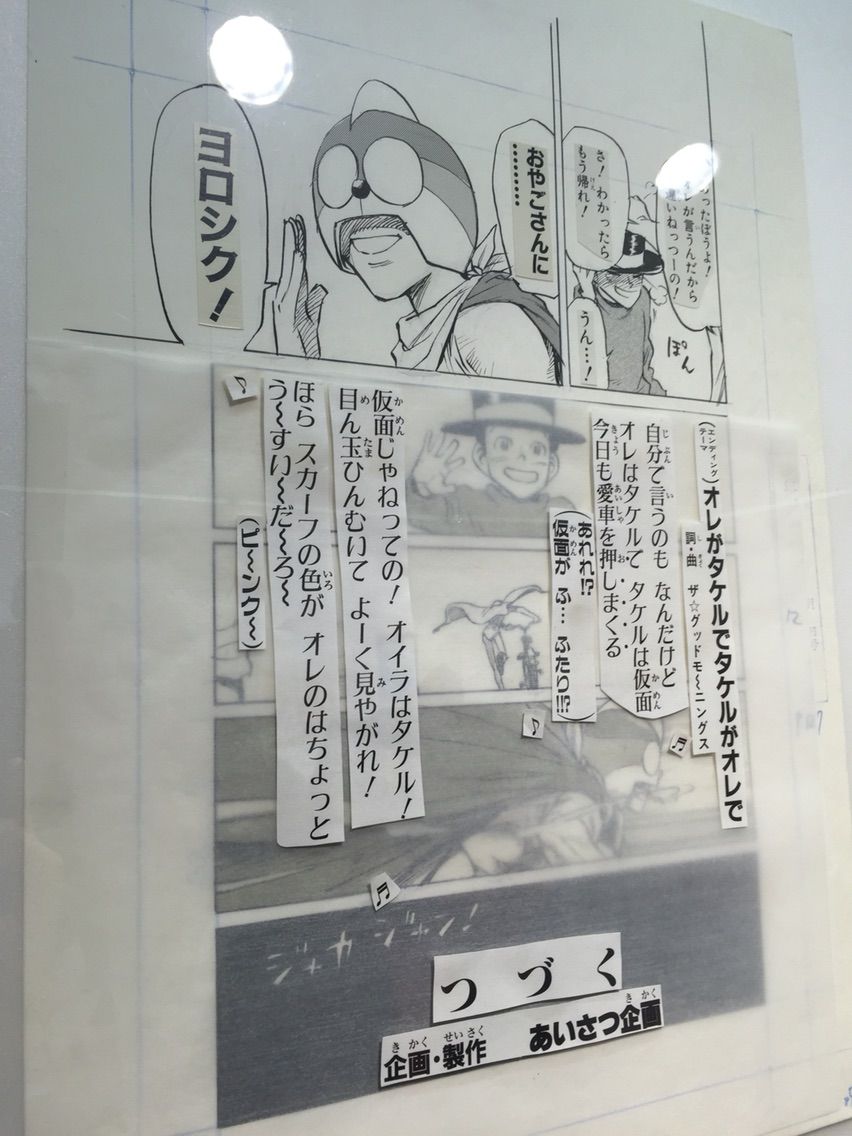 が言うんだから
さ！わかったら
もう帰れ！
うん…！
ぽん
おやごさんに
………
ヨロシク！
（エンディングテーマ）オレがタケルでタケルがオレで
詞・曲 ザ☆グッドモ〜ニングス
自分で言うのも なんだけど
オレはタケルで タケルは仮面
今日も愛車を押しまくる
（あれれ!?
仮面が ふ… ふたり!!?）
仮面じゃねっての！ オイラはタケル！
目ん玉ひんむいて よーく見やがれ！
ほら スカーフの色が オレのはちょっと
う〜すい〜だ〜ろ〜
（ピ〜ンク〜）
つづく
企画・製作 あいさつ企画